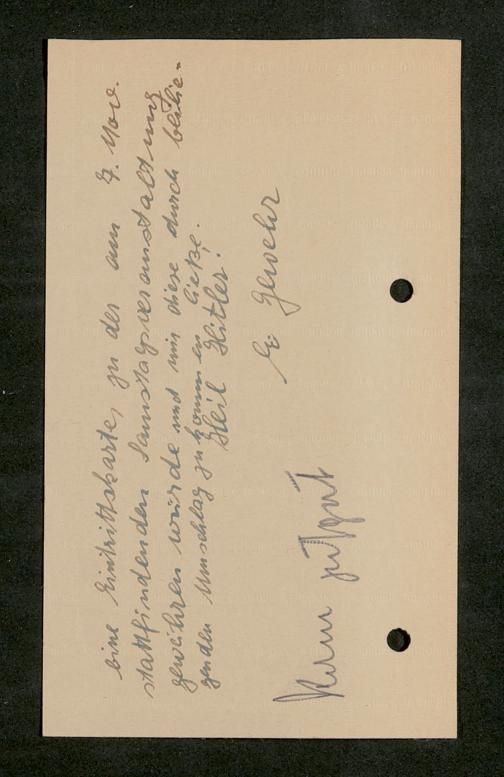 eine Eintrittskarte, zu der am 7. Nov.
stattfindenden Samstagsveranstaltung
gewähren würde und mir diese durch beilie-
genden Umschlag zu kommen ließe.
Heil Hitler!
E. Gewehr